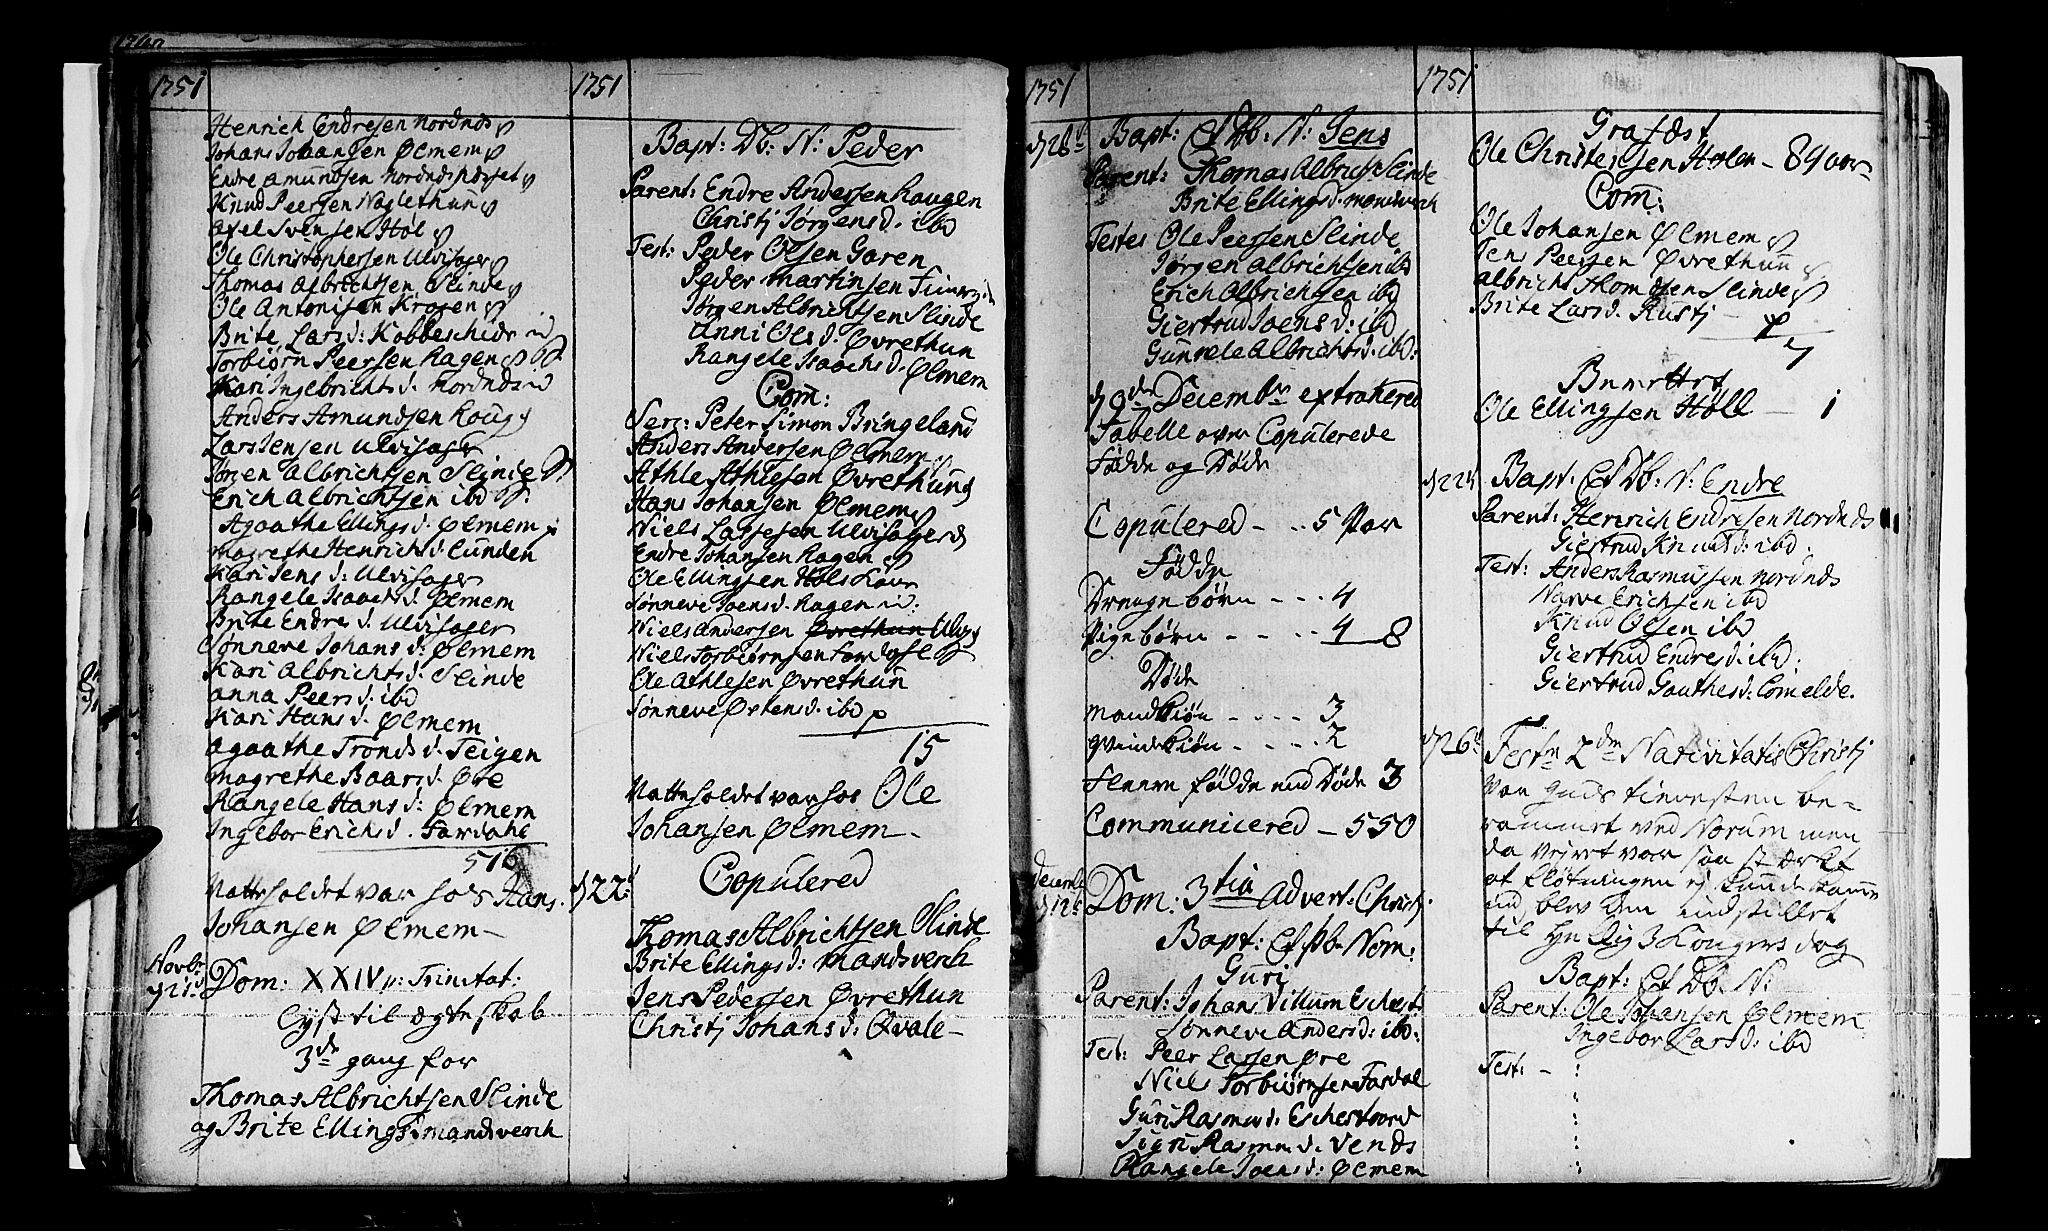 1751
Henrich Endresen Nordnds
Johans Johansen Ølmem
Endre Amundsen Nordnds
Knud Peersen Naglethun
Axel Svensen Høl
Ole Christophersen Ulvisager
Thomas Albrichtsen Slinde
Ole Antonisen Krogen
Brite Lars d: Kobbeschide
Torbiørn Peersen Hagen
Kari Ingebrichts d. Nordnds
Anders Amundsen Houg
Lars Jensen Ulvisager
Jørgen Albrichtsen Slinde
Erich Albrichtsen ibd
Agaathe Ellings d: Ølmem
Magrethe Henrichs d. Lunden
Kari Jens d: Ulvisager
Rangele Isaachs d. Ølmem
Brite Endre d. Ulvisager
Sønneve Johans d: Ølmem
Kari Albrichts d. Slinde
Anna Peers d: ibd
Kari Hans d. Ølmem
Agaathe Tronds d. Teigen
Magrethe Baars d. Øre
Rangele Hans d: Ølmem
Ingebor Erichs d. Fardahl
516
Natteholdet var hos Hans
Johansen Ølmem -
Novbr
d 21.
Dom: XXIV p: Trinitat:
Lyst til ægteskab
3de gang for
Thomas Albrichtsen Slinde
og Brite Ellings d. Mandsverch
1751
Bapt: Db: N: Peder
Parent: Endre Andersen Haugen
Christj Jørgens d. ibd
Test: Peder Olsen Garen
Peder Martinsen
Jørgen Albrichtsen Slinde
Anni Ols d. Øvrethun
Rangele Isaachs d. Ølmem
Com:
Serg: Peter Simon Bringeland
Anders Andersen Ølmem
Athle Athlesen Øvrethun
Hans Johansen Ølmem
Niels Lassesen Ulvisager
Endre Johansen Hagen
Ole Ellingsen Høls
Sønneve Joens d. Hagen
Niels Andersen Øvrethun Ulvs
Niels Torbiørnsen Fardahl
Ole Athlesen Øvrethun
Sønneve Østens d. ibd
15
Natteholdet var hos Ole
Johansen Ølmem -
d 22:
Copulered
Thomas Albrichtsen Slinde
Brite Ellings d: Mandsverch
Jens Pedersen Øvrethun
Christj Johans d: Qvale -
1751
d 28
Bapt: Et Db: N: Jens
Parent: Thomas Albrichts Slinde
Brite Ellings d. Mandsverch
Testes Ole Peersen Slinde
Jørgen Albrichtsen ibd
Erich Albrichtsen ibd
Giertrud Joens d: ibd
Gunnele Albrichts d. ibd:
d 9de Decembr extrahered
Tabelle over Copulerede
Fødde og Døde
Copulered - .. 5 Par
Fødde
Drengebørn - - - 4
Pigebørn - - - - 4 8
Døde
Mandkiøn - - - - 3
Qvindekiøn - - - - 2
Fleere fødde end Døde 3
Communicered - 550
Decemb
d 12
Dom: 3tia Advent: Christj
Bapt: Et Db. Nom:
Guri
Parent: Johan Villum
Sønneve Anders d: ibd:
Test: Peer Lassen Øre
Niels Torbiørnsen Fardal
Guri Rasmus d:
Sigri Rasmus d. Vends
Rangele Joens d: Ølmem
1751
Grafæst
Ole Christensen Holen - 89 aar
Com:
Ole Johansen Ølmem
Jens Peersen Øvrethun
Albricht Thomæsen Slinde
Brite Lars d. Rustj
4
Ole Ellingsen Høll - 1
d 22
Bapt. Et Db: N: Endre
Parent: Henrich Endresen Nordnds
Giertrud Knuds d: ibd.
Test: Anders Rasmussen Nordnds
Narve Erichsen ibd
Knud Olsen ibd
Giertrud Endres d: ibd:
Giertrud Gauthes d: Lomelde.
d 26
Festn 2dn Nativitatis Christj
Var Guds tienesten be-
rammet ved Norum men
da veiret var saa stærkt
at fløtningen ej kunde komme
ud blev den indstillet
til Hellig 3 Kongers dag
Bapt: Et Db. N:
Parent: Ole Johansen Ølmem
Ingebor Lars d: ibd
Test: -